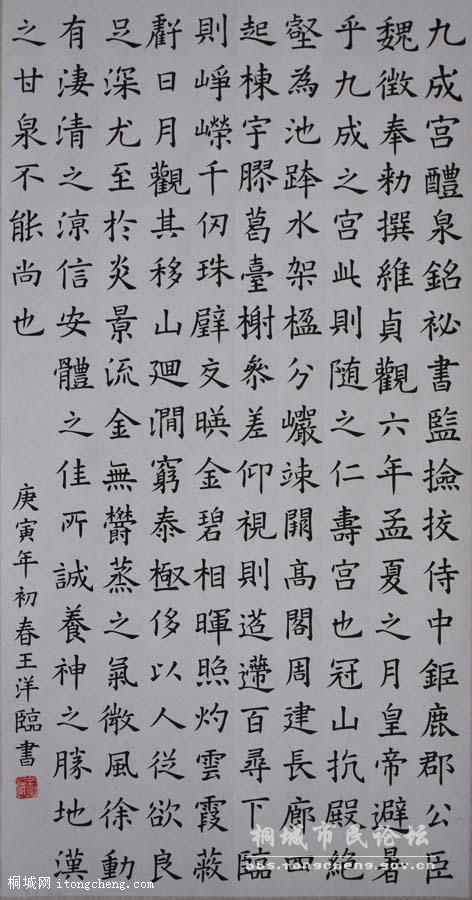 九成宫醴泉銘祕書監撿挍侍中鉅鹿郡公臣
魏徵奉勑撰維貞觀六年孟夏之月皇帝避暑
乎九成之宫此則随之仁壽宫也冠山抗殿絶
壑為池跨水架楹分巗竦闕高閣周建長廊四
起棟宇膠葛臺榭叅差仰視則迢遰百尋下臨
則崢嶸千仞珠璧交暎金碧相暉照灼雲霞蔽
虧日月觀其移山迴澗窮泰極侈以人從欲良
足深尤至於炎景流金無欝蒸之氣微風徐動
有淒清之涼信安體之佳所誠養神之勝地漢
之甘泉不能尚也
庚寅年初春王洋臨書
桐城市民论坛
桐城网 itongcheng.com